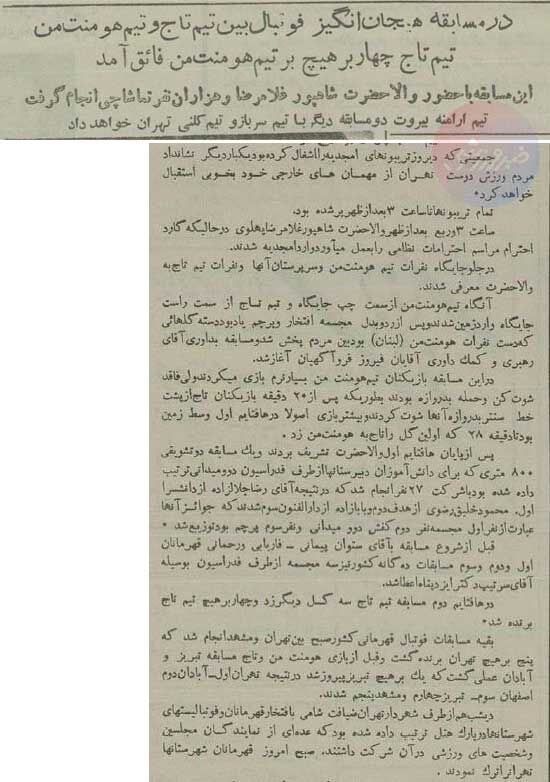 در مسابقه هیجان انگیز فوتبال بین تیم تاج و تیم هومنت من
تیم تاج چهار بر هیچ بر تیم هومنت من فائق آمد
این مسابقه با حضور والاحضرت شاهپور غلامرضا و هزاران نفر تماشاچی انجام گرفت
تیم ارامنه بیروت دو مسابقه دیگر با تیم سرباز و تیم کلنی تهران خواهد داد
جمعیتی که دیروز تریبونهای امجدیه را اشغال کرده بود یکبار دیگر نشانداد
مردم ورزش دوست تهران از مهمان های خارجی خود بخوبی استقبال
خواهد کرد
تمام تریبونها تا ساعت ۳ بعد از ظهر پر شده بود.
ساعت ۳ و ربع بعد از ظهر والاحضرت شاهپور غلامرضا پهلوی در حالیکه گارد
احترام مراسم احترامات نظامی را بعمل میآورد وارد امجدیه شدند.
در جلو جایگاه نفرات تیم هومنت من و سرپرستان آنها و نفرات تیم تاج به
والاحضرت معرفی شدند.
آنگاه تیم هومنت من از سمت چپ جایگاه و تیم تاج از سمت راست
جایگاه وارد زمین شدند و پس از رد و بدل مجسمه افتخار و پرچم یادبود دسته گلهائی
که دست نفرات هومنت من (لبنان) بود بین مردم پخش شد و مسابقه بداوری آقای
رهبری و کمک داوری آقایان فیروز فروآگهیان آغاز شد.
در این مسابقه بازیکنان تیم هومنت من بسیار نرم بازی میکردند ولی فاقد
شوت کن و حمله بدروازه بودند بطوریکه پس از ۲۰ دقیقه بازیکنان تاج از پشت
خط سنتر بدروازه آنها شوت کردند و بیشتر بازی اصولا در هافتایم اول وسط زمین
بود تا دقیقه ۲۸ که اولین گل را تاج به هومنت من زد.
پس از پایان هافتایم اول والاحضرت تشریف بردند و یک مسابقه دو تشویقی
۸۰۰ متری که برای دانش آموزان دبیرستانها از طرف فدراسیون دو و میدانی ترتیب
داده شده بود با شرکت ۲۷ نفر انجام شد که در نتیجه آقای رضا جلالزاده از دانشسرا
اول. محمود خلیق رضوی از هدف دوم و بابازاده از دارالفنون سوم شدند که جوائز آنها
عبارت از نفر اول مجسمه نفر دوم کفش دو و میدانی و نفر سوم پرچم بود توزیع شد
قبل از شروع مسابقه بآقای ستوان پیمانی ـ فاریابی و رحمانی قهرمانان
اول و دوم و سوم مسابقات ده گانه کشور نیز سه مجسمه از طرف فدراسیون بوسیله
آقای سرتیپ دکتر ایزدپناه اعطا شد.
در هافتایم دوم مسابقه تیم تاج سه گل دیگر زد و چهار بر هیچ تیم تاج
برنده شد
بقیه مسابقات فوتبال قهرمانی کشور صبح بین تهران و مشهد انجام شد که
پنج بر هیچ تهران برنده گشت و قبل از بازی هومنت من و تاج مسابقه تبریز و
آبادان عملی گشت که یک بر هیچ تبریز پیروز شد در نتیجه تهران اول ـ آبادان دوم
اصفهان سوم ـ تبریز چهارم و مشهد پنجم شدند.
دیشب هم از طرف شهردار تهران ضیافت شامی بافتخار قهرمانان و فوتبالیستهای
شهرستانها در پارک هتل ترتیب داده شده بود که عده‌ای از نمایندگان مجلسین
و شخصیت های ورزشی در آن شرکت داشتند. صبح امروز قهرمانان شهرستانها
تهران را ترک نمودند.